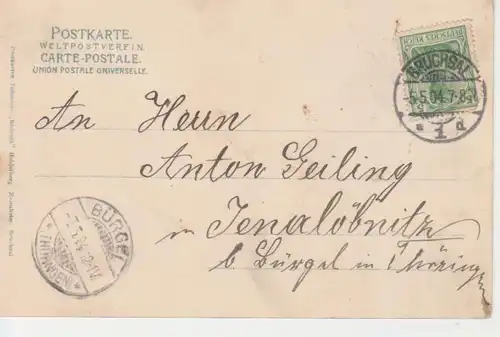 POSTKARTE.
WELTPOSTVEREIN.
CARTE-POSTALE.
UNION POSTALE UNIVERSELLE.
BRUCHSAL
5.04.7-8
* 1 d
An Herrn
Anton Geiling
in Jenalöbnitz
b. Bürgel in Thüringen
BÜRGEL
* (THÜRINGEN) *
Heidelberg